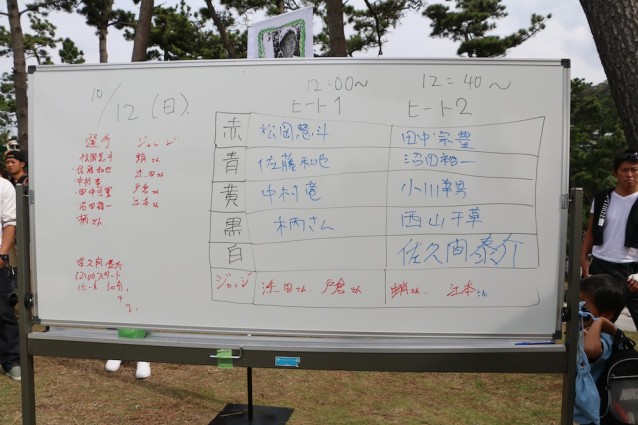 10/12(日)
12:00~
12:40~
ヒート1
ヒート2
赤 松岡慧斗 田中宗豊
青 佐藤和也 沼田裕一
黄 中村竜 小川幸男
黒 柄さん 西山千草
白 佐久間泰介
ジャッジ 浜田さん、戸倉さん 蛸さん、江本さん
選手 ジャッジ
松岡慧斗 蛸さん
・佐藤和也 浜田さん
・中村竜 戸倉さん
・田中宗豊 江本さん
・沼田裕一
・柄さん
佐久間泰介
12:00スタート
1ヒート 30分、